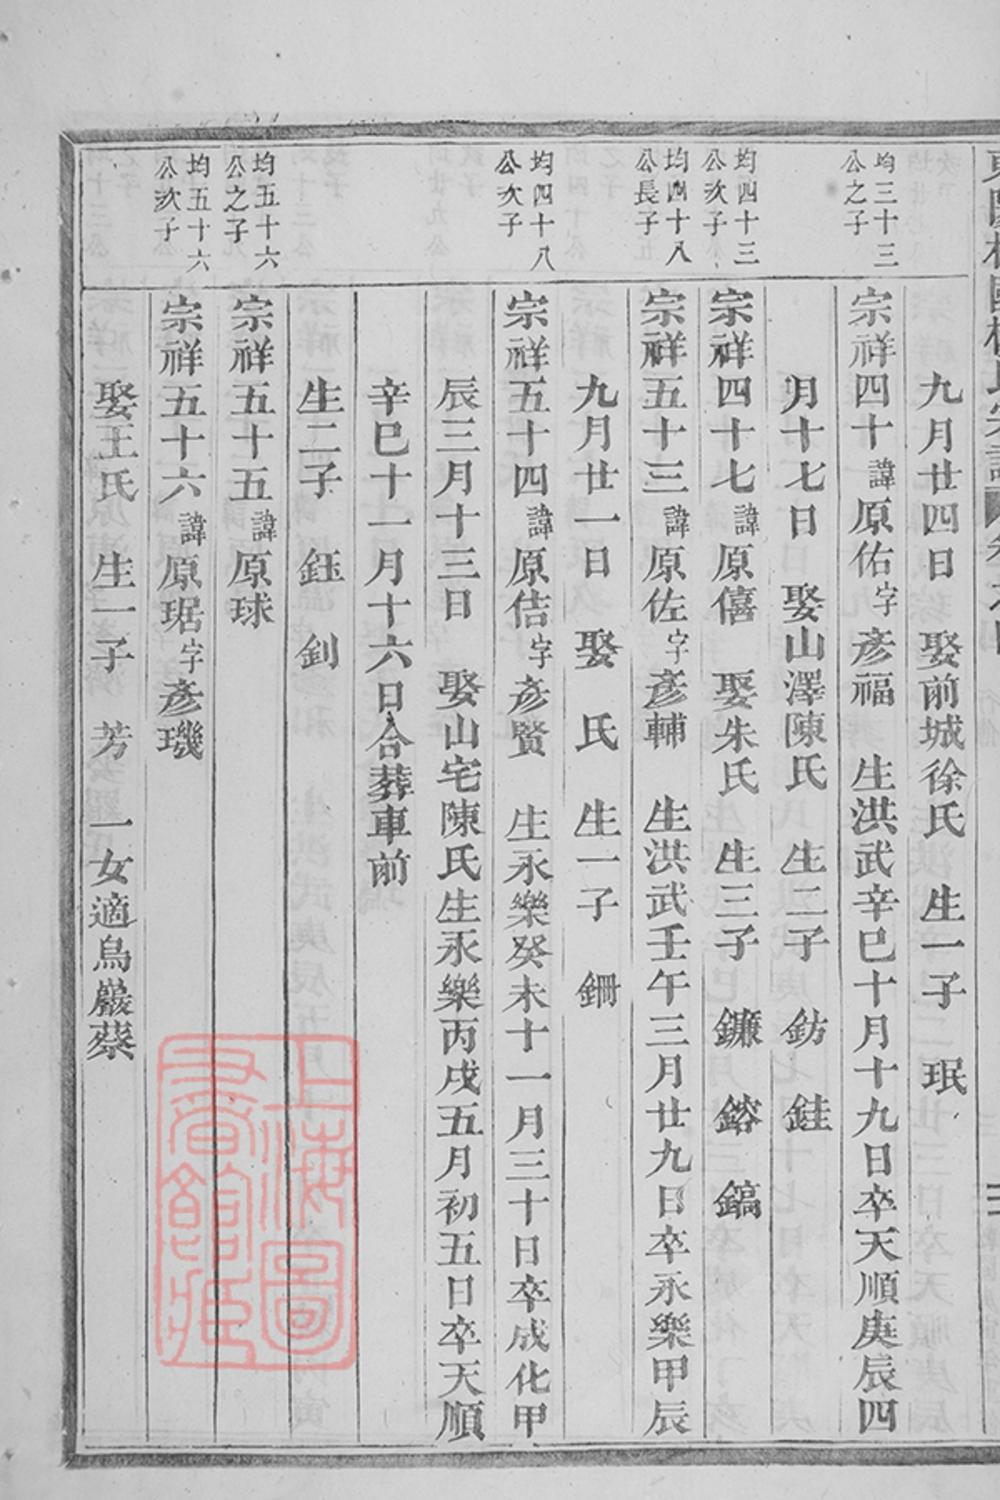 九月廿四日 娶前城徐氏 生一子 珉
均三十三
公之子
宗祥四十諱原佑字彥福 生洪武辛巳十月十九日卒天順庚辰四
月十七日 娶山澤陳氏 生二子 鈁 銈
均四十三
公次子
宗祥四十七諱原僖 娶朱氏 生三子 鐮 鎔 鎬
均四十八
公長子
宗祥五十三諱原佐字彥輔 生洪武壬午三月廿九日卒永樂甲辰
九月廿一日 娶 氏 生一子 鈿
均四十八
公次子
宗祥五十四諱原佶字彥賢 生永樂癸未十一月三十日卒成化甲
辰三月十三日 娶山宅陳氏生永樂丙戌五月初五日卒天順
辛巳十一月十六日合葬車前
生二子 鈺 釗
均五十六
公之子
宗祥五十五諱原球
均五十六
公次子
宗祥五十六諱原琚字彥璣
娶王氏 生一子 芳 一女適鳥巖蔡
上海圖書館藏